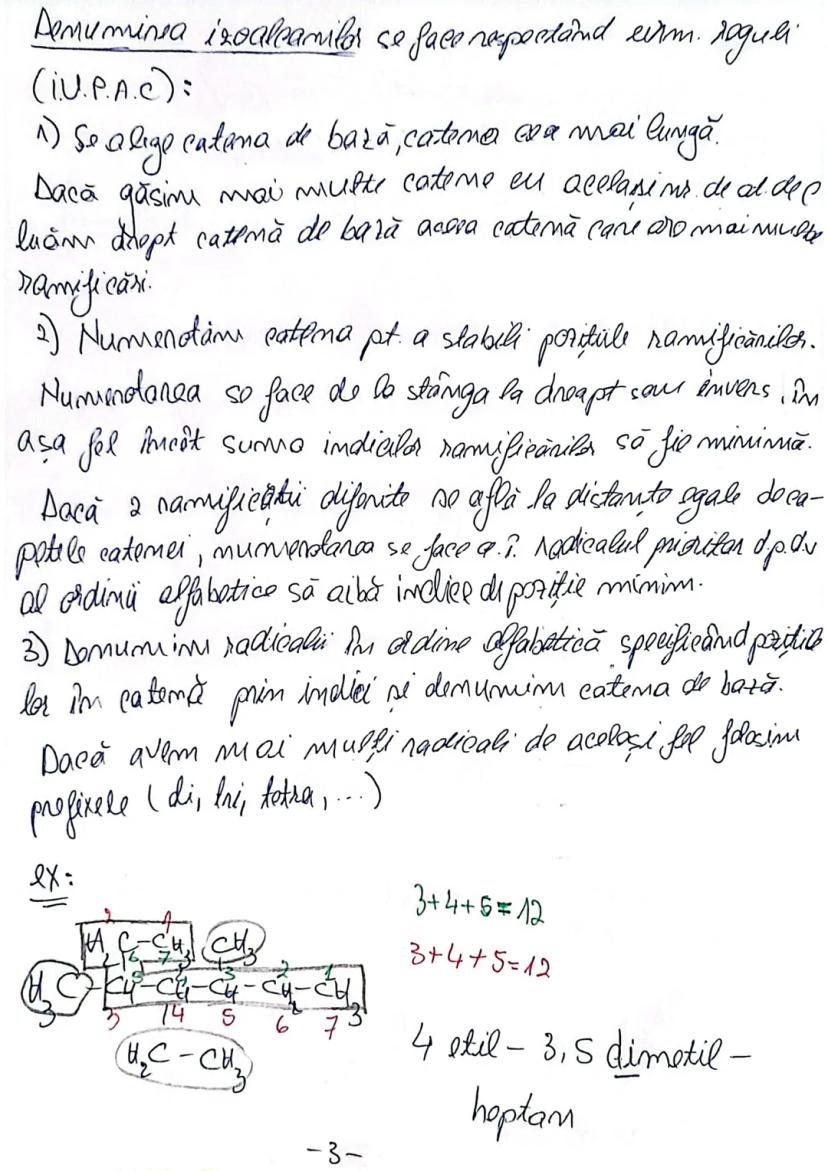 Denumirea izoalcanilor se face respectând urm. reguli
(i.U.P.A.C):
1) Se alege catena de bază, catena cea mai lungă.
Dacă găsim mai multe catene cu același nr. de at. de C
luăm drept catenă de bază aceea catenă care are mai multe
ramificări.
2) Numerotăm catena pt. a stabili pozițiile ramificărilor.
Numerotarea se face de la stânga la dreapt sau invers, în
așa fel încât suma indicilor ramificărilor să fie minimă.
Dacă 2 ramificații diferite se află la distanțe egale de ca-
petele catenei, numerotarea se face a.î. radicalul prioritar d.p.d.v
al ordinii alfabetice să aibă indice de poziție minim.
3) Denumim radicalii în ordine alfabetică specificând pozițiile
lor în catenă prin indici și denumim catena de bază.
Dacă avem mai mulți radicali de același fel folosim
prefixele (di, tri, tetra, ...)
ex:
3+4+5=12
2 1
H₂C-CH₃ CH₃
6 7
3+4+5=12
5 4 3 2 1
H₃C-CH-CH-CH-CH₂-CH₃
3 4 5 6 7
H₂C-CH₃
4 etil-3,5 dimetil-
heptan
-3-